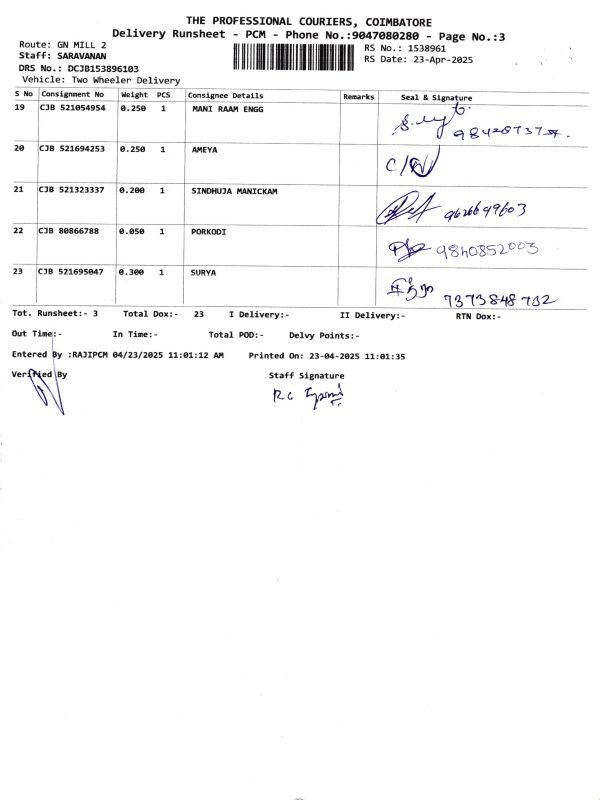 THE PROFESSIONAL COURIERS, COIMBATORE
Delivery Runsheet - PCM - Phone No.:9047080280 - Page No.:3
Route: GN MILL 2
RS No.: 1538961
Staff: SARAVANAN
RS Date: 23-Apr-2025
DRS No.: DCJB153896103
Vehicle: Two Wheeler Delivery
S No Consignment No Weight PCS Consignee Details Remarks Seal & Signature
19 CJB 521054954 0.250 1 MANI RAAM ENGG
20 CJB 521694253 0.250 1 AMEYA
21 CJB 521323337 0.200 1 SINDHUJA MANICKAM
9626699603
22 CJB 80866788 0.050 1 PORKODI
9840852003
23 CJB 521695047 0.300 1 SURYA
7373848732
Tot. Runsheet:- 3 Total Dox:- 23 I Delivery:- II Delivery:- RTN Dox:-
Out Time:- In Time:- Total POD:- Delvy Points:-
Entered By :RAJIPCM 04/23/2025 11:01:12 AM Printed On: 23-04-2025 11:01:35
Verified By Staff Signature